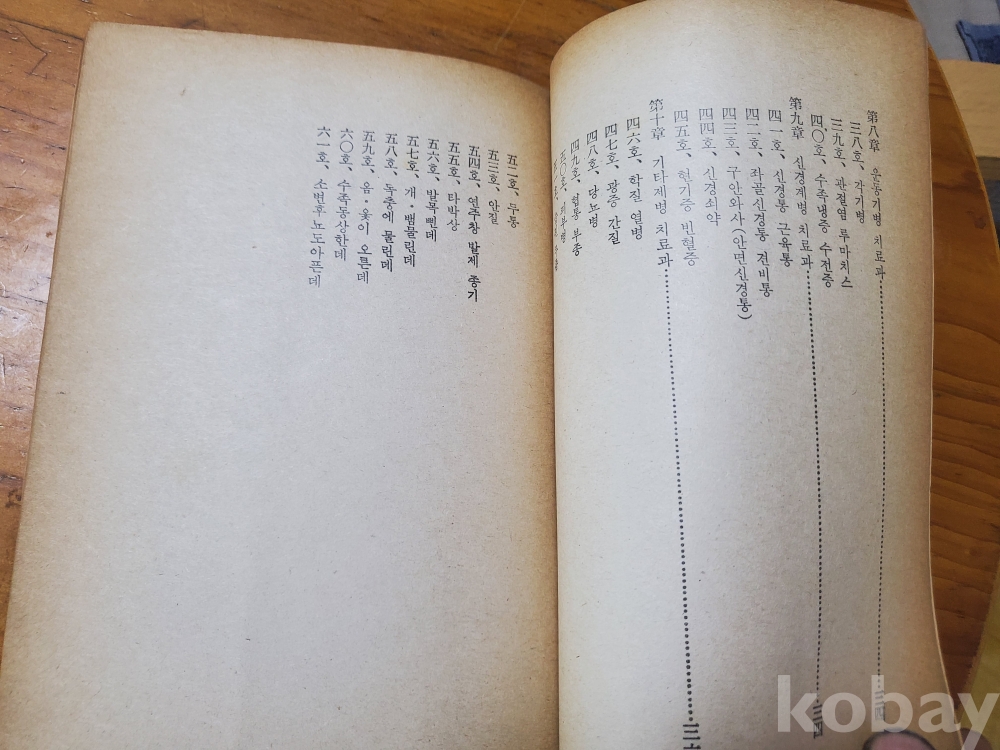 第八章 운동기병 치료과……三四
三八호、각기병
三九호、관절염 루마치스
四〇호、수족냉증 수전증
第九章 신경계병 치료과……三四
四一호、신경통 근육통
四二호、좌골신경통 견비통
四三호、구안와사(안면신경통)
四四호、신경쇠약
四五호、현기증 빈혈증
第十章 기타제병 치료과……三
四六호、학질 열병
四七호、광증 간질
四八호、당뇨병
四九호、혈통 부종
五〇호、피부병
五二호、두통
五三호、안질
五四호、연주창 발제 종기
五五호、타박상
五六호、발목삔데
五七호、개・뱀물린데
五八호、독충에 물린데
五九호、옴・옻이 오른데
六〇호、수족동상한데
六一호、소변후 노도아픈데
kobay